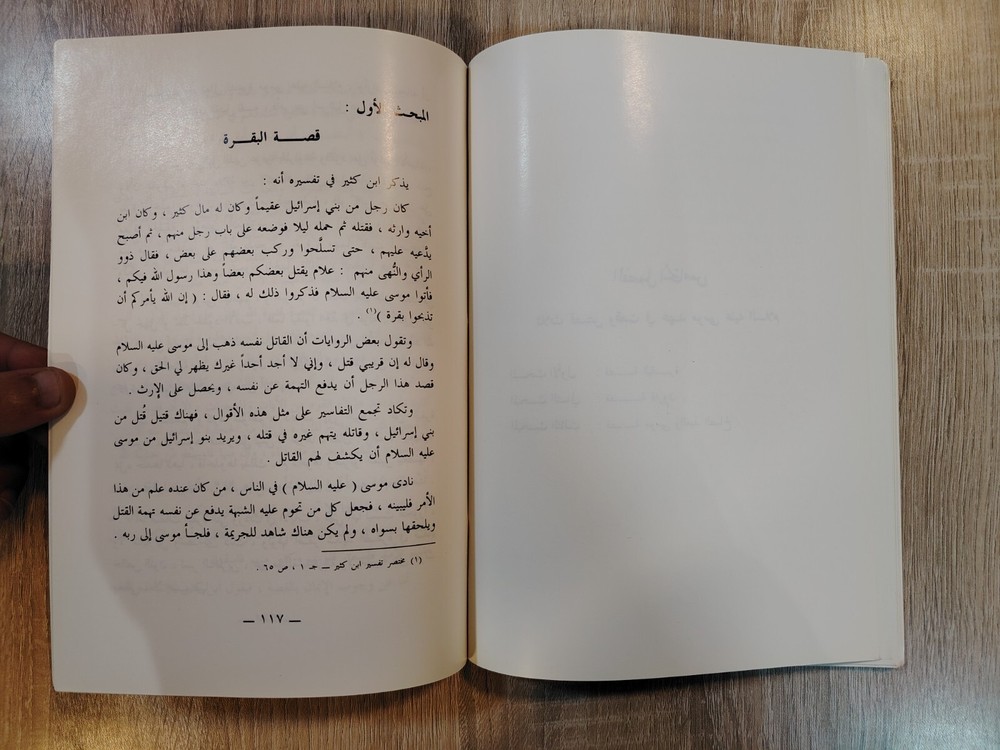 المبحث الأول :
قصة البقرة
يذكر ابن كثير في تفسيره أنه :
كان رجل من بني إسرائيل عقيماً وكان له مال كثير ، وكان ابن
أخيه وارثه ، فقتله ثم حمله ليلا فوضعه على باب رجل منهم ، ثم أصبح
يدَّعيه عليهم ، حتى تسلَّحوا وركب بعضهم على بعض ، فقال ذوو
الرأي والنُّهى منهم : علام يقتل بعضكم بعضاً وهذا رسول الله فيكم ،
فأتوا موسى عليه السلام فذكروا ذلك له ، فقال : ( إن الله يأمركم أن
تذبحوا بقرة )(١) .
وتقول بعض الروايات أن القاتل نفسه ذهب إلى موسى عليه السلام
وقال له إن قريبي قتل ، وإني لا أجد أحداً غيرك يظهر لي الحق ، وكان
قصد هذا الرجل أن يدفع التهمة عن نفسه ، ويحصل على الإرث .
وتكاد تجمع التفاسير على مثل هذه الأقوال ، فهناك قتيل قُتل من
بني إسرائيل ، وقاتله يتهم غيره في قتله ، ويريد بنو إسرائيل من موسى
عليه السلام أن يكشف لهم القاتل .
نادى موسى ( عليه السلام ) في الناس ، من كان عنده علم من هذا
الأمر فليبينه ، فجعل كل من تحوم عليه الشبهة يدفع عن نفسه تهمة القتل
ويلحقها بسواه ، ولم يكن هناك شاهد للجريمة ، فلجأ موسى إلى ربه .
(١) مختصر تفسير ابن كثير ــ جـ ١ ، ص ٦٥ .
ــ ١١٧ ــ